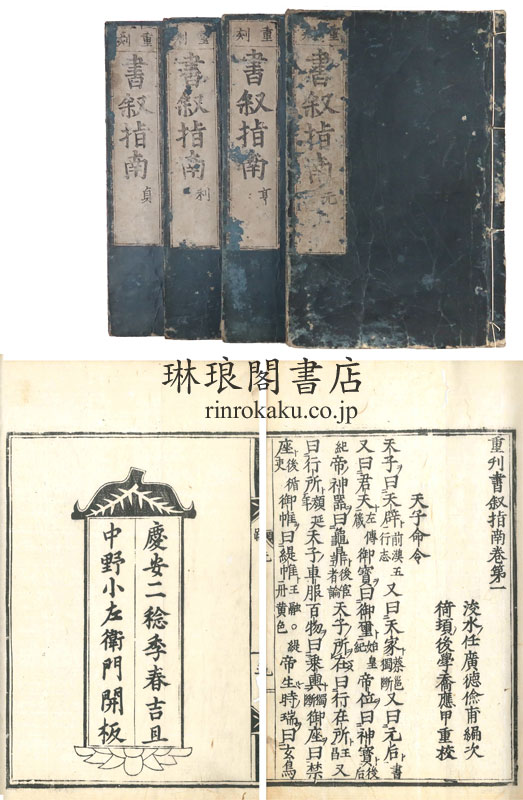 重刻
書叙指南
元
重刻
書叙指南
亨
重刻
書叙指南
利
重刻
書叙指南
貞
琳琅閣書店
rinrokaku.co.jp
重刊書叙指南卷第一
浚水任廣德儉甫編次
猗頓後學喬應甲重校
天子命令
天子曰天辟前漢五行志又曰天家蔡邕獨斷又曰元后書
又曰君天左傳箴御寶曰御璽始皇紀帝位曰神寶後
紀帝神器曰龜鼎後宦者論天子所在曰行在所王又
曰行所顔延天子車服百物曰乗輿獨斷御座曰禁
座後循吏御帷曰緹帷王融。緹冊黄色帝生時瑞曰玄鳥
慶安二稔季春吉旦
中野小左衛門開板